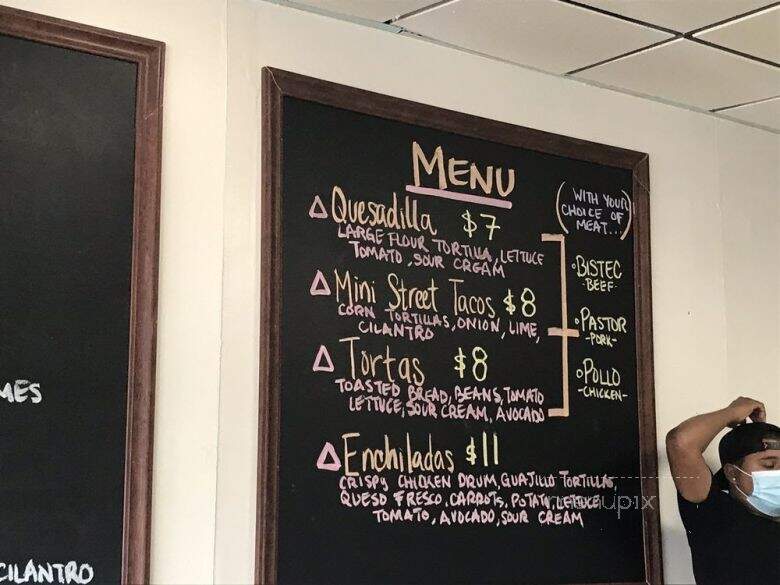 MENU
Quesadilla $7
LARGE FLOUR TORTILLA, LETTUCE
TOMATO, SOUR CREAM
Mini Street Tacos $8
CORN TORTILLAS, ONION, LIME,
CILANTRO
Tortas $8
TOASTED BREAD, BEANS, TOMATO
LETTUCE, SOUR CREAM, AVOCADO
Enchiladas $11
CRISPY CHICKEN DRUM, GUAJILLO TORTILLAS,
QUESO FRESCO, CARROTS, POTATO, LETTUCE
TOMATO, AVOCADO, SOUR CREAM
(WITH YOUR
CHOICE OF
MEAT...)
•BISTEC
-BEEF-
•PASTOR
-PORK-
•POLLO
-CHICKEN-
MES
CILANTRO
menupix